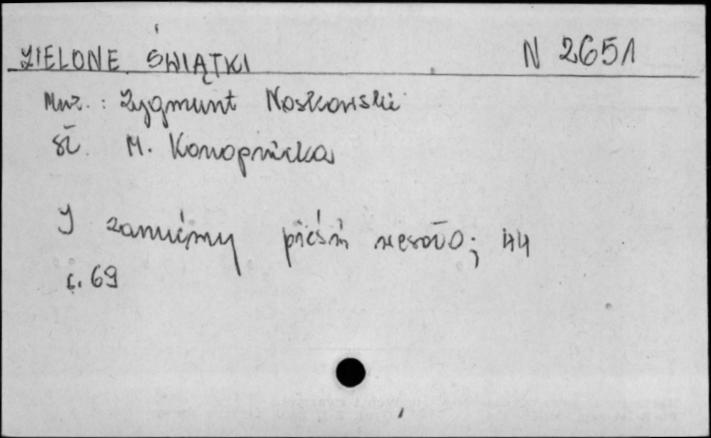 ZIELONE ŚWIĄTKI N 2651
Muz. : Zygmunt Noskowski
sł. M. Konopnicka
I zanućmy pieśń wesoło; 44
s. 69